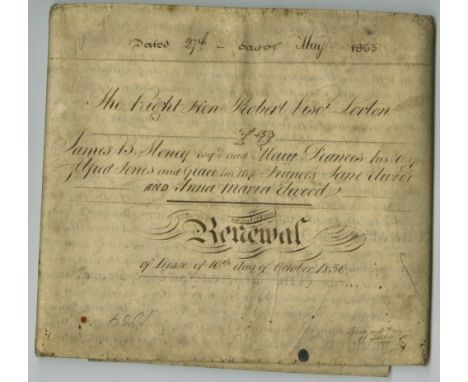 Dated 27th day of May 1865
The Right Hon Robert Visct Lorton
to
James B. Stoney Esqre and Mary Frances his wife
Alfred Jones and Grace his wife Frances Jane Elwood
AND Anna Maria Elwood
Renewal
of Lease of 16th day of October 1830.